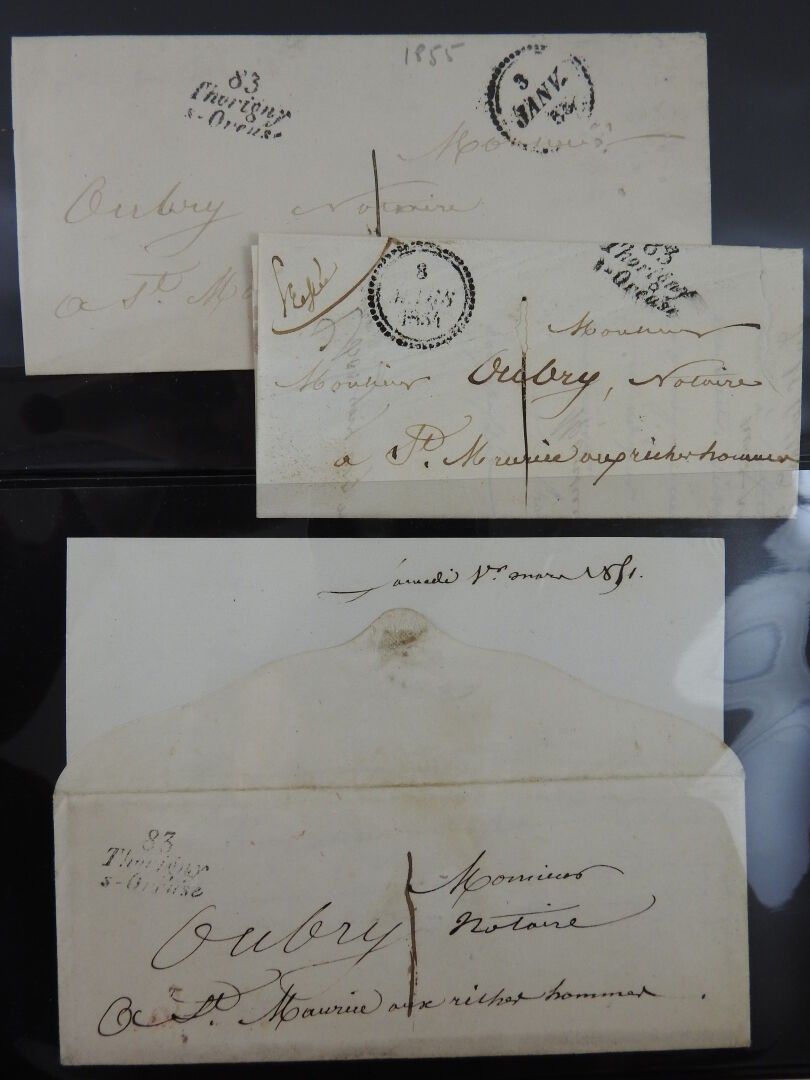 1855
83
Thorigny
s-Oreuse
3
JANV.
Monsieur
Oubry Notaire
a St.
83
Thorigny
s-Oreuse
8
MARS
1854
Monsieur
Monsieur Oubry, Notaire
a St. Maurice aux riches hommes
Samedi 1er mars 1851.
83
Thorigny
s-Oreuse
1
Monsieur
Oubry Notaire
A St. Maurice aux riches hommes.